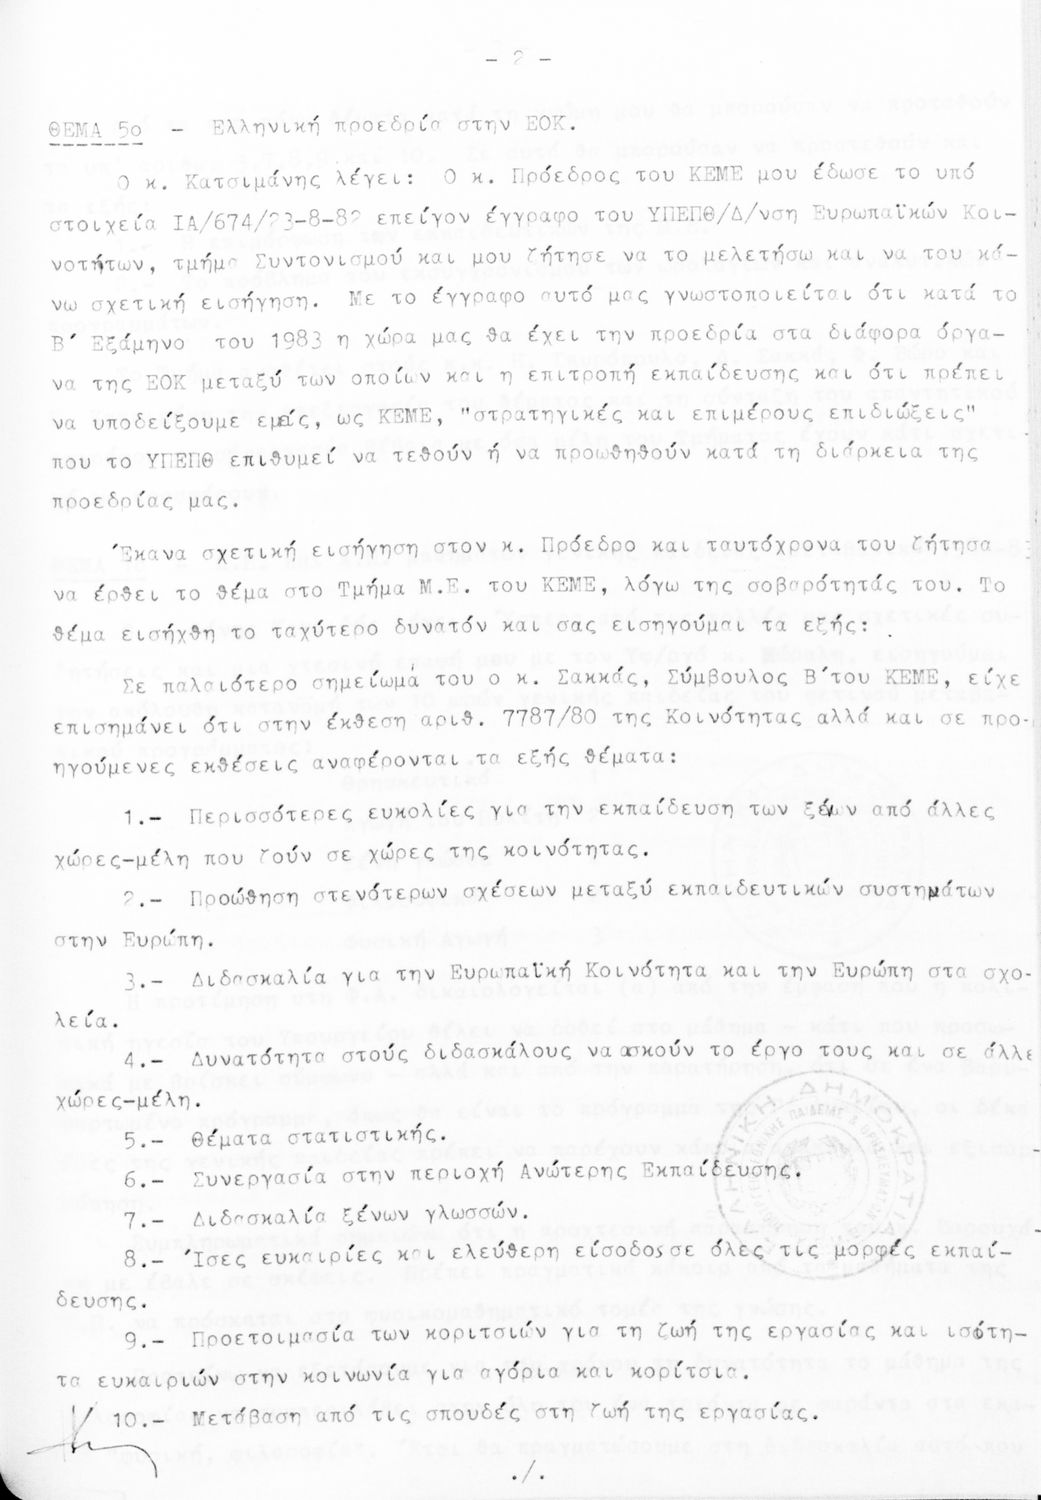 - 2 -
ΘΕΜΑ 5ο - Ελληνική προεδρία στην ΕΟΚ.
Ο κ. Κατσιμάνης λέγει: Ο κ. Πρόεδρος του ΚΕΜΕ μου έδωσε το υπό
στοιχεία ΙΑ/674/23-8-82 επείγον έγγραφο του ΥΠΕΠΘ/Δ/νση Ευρωπαϊκών Κοι-
νοτήτων, τμήμα Συντονισμού και μου ζήτησε να το μελετήσω και να του κά-
νω σχετική εισήγηση. Με το έγγραφο αυτό μας γνωστοποιείται ότι κατά το
Β΄ Εξάμηνο του 1983 η χώρα μας θα έχει την προεδρία στα διάφορα όργα-
να της ΕΟΚ μεταξύ των οποίων και η επιτροπή εκπαίδευσης και ότι πρέπει
να υποδείξουμε εμείς, ως ΚΕΜΕ, "στρατηγικές και επιμέρους επιδιώξεις"
που το ΥΠΕΠΘ επιθυμεί να τεθούν ή να προωθηθούν κατά τη διάρκεια της
προεδρίας μας.
Έκανα σχετική εισήγηση στον κ. Πρόεδρο και ταυτόχρονα του ζήτησα
να έρθει το θέμα στο Τμήμα Μ.Ε. του ΚΕΜΕ, λόγω της σοβαρότητάς του. Το
θέμα εισήχθη το ταχύτερο δυνατόν και σας εισηγούμαι τα εξής:
Σε παλαιότερο σημείωμά του ο κ. Σακκάς, Σύμβουλος Β΄του ΚΕΜΕ, είχε
επισημάνει ότι στην έκθεση αριθ. 7787/80 της Κοινότητας αλλά και σε προ-
ηγούμενες εκθέσεις αναφέρονται τα εξής θέματα:
1.- Περισσότερες ευκολίες για την εκπαίδευση των ξένων από άλλες
χώρες-μέλη που ζούν σε χώρες της κοινότητας.
2.- Προώθηση στενότερων σχέσεων μεταξύ εκπαιδευτικών συστημάτων
στην Ευρώπη.
3.- Διδασκαλία για την Ευρωπαϊκή Κοινότητα και την Ευρώπη στα σχο-
λεία.
4.- Δυνατότητα στούς διδασκάλους να ασκούν το έργο τους και σε άλλε
χώρες-μέλη.
5.- Θέματα στατιστικής.
6.- Συνεργασία στην περιοχή Ανώτερης Εκπαίδευσης.
7.- Διδασκαλία ξένων γλωσσών.
8.- Ίσες ευκαιρίες και ελεύθερη είσοδος σε όλες τις μορφές εκπαί-
δευσης.
9.- Προετοιμασία των κοριτσιών για τη ζωή της εργασίας και ισότη-
τα ευκαιριών στην κοινωνία για αγόρια και κορίτσια.
10.- Μετάβαση από τις σπουδές στη ζωή της εργασίας.
./.